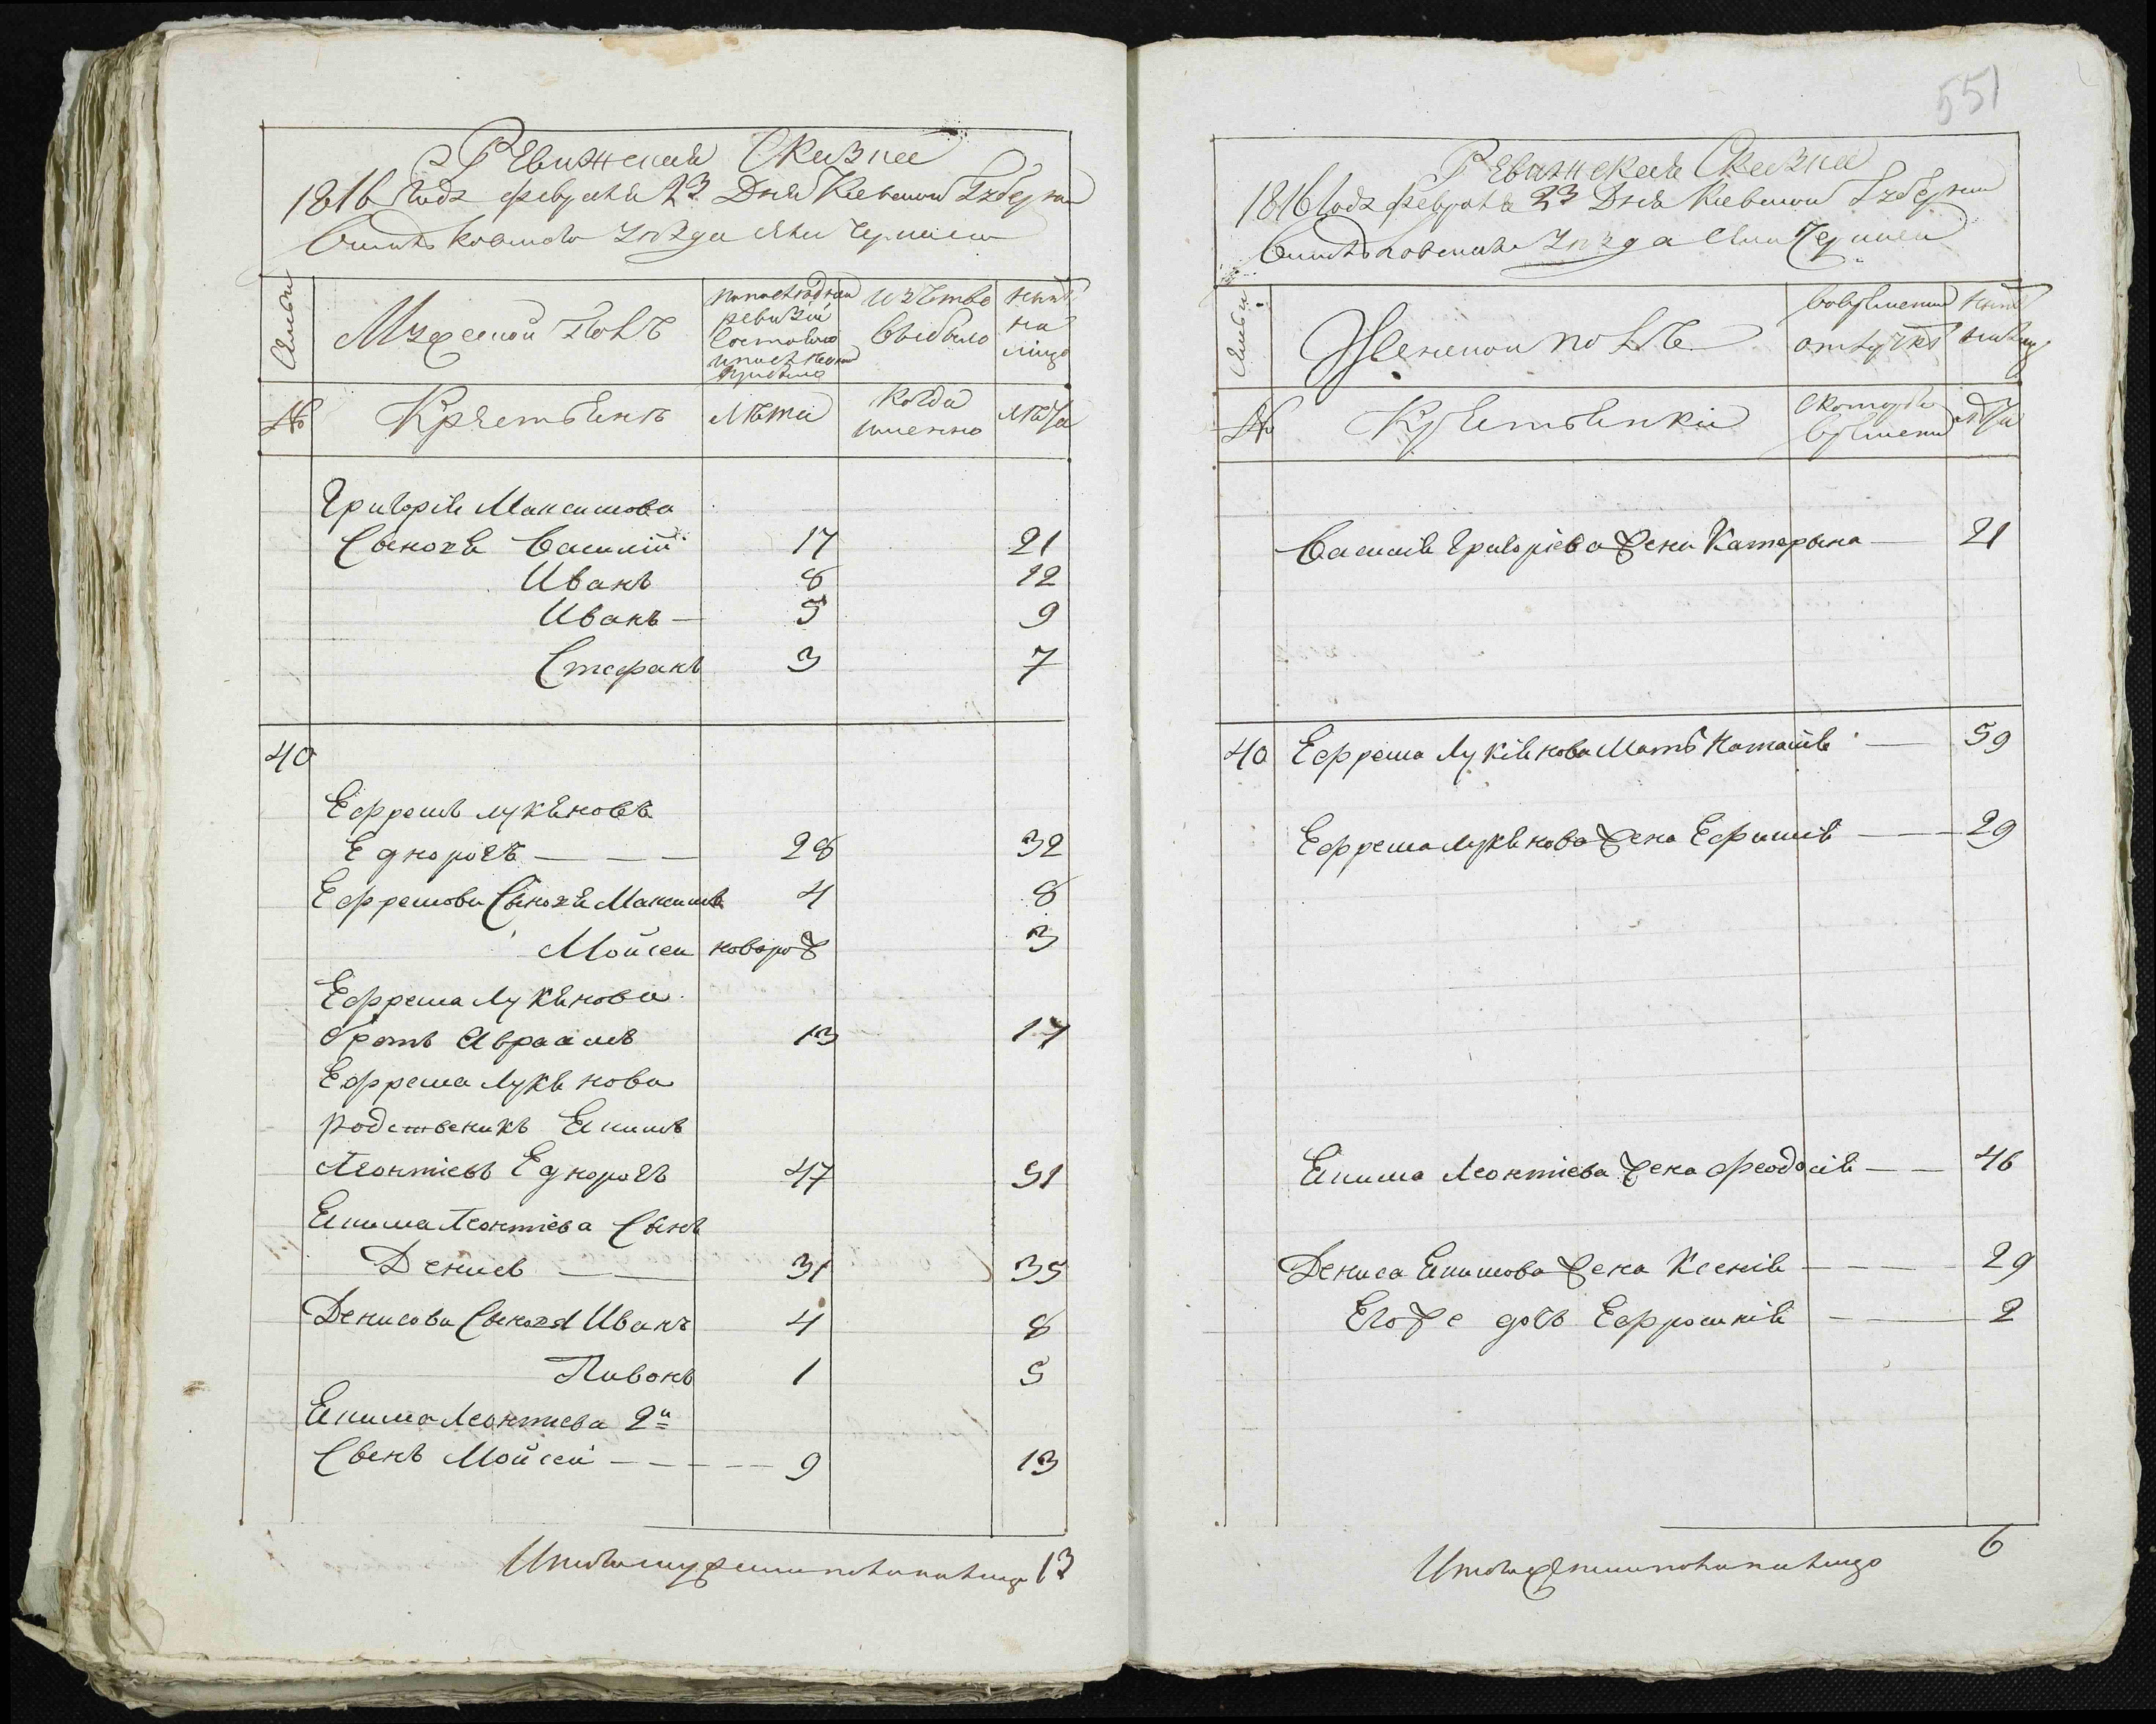 Ревижская Сказка
1816 Года февраля 23 Дня Киевской Губернии
Уезда села
Семьи
Мужеской Полъ
По последней ревизии состояло и после неё прибыло
Изъ того выбыло
Ныне на лицо
№
Крестьянъ
Лета
Когда именно
Лета
Григорія Максимова
Сыновя Василій 17 21
Иванъ 8 12
Иванъ — 5 9
Стефанъ 3 7
40
Ефремъ Лукяновъ
Еднорогъ — — — 28 32
Ефремови Сыновя Максимъ 4 8
Мойсей новорож 3
Ефрема Лукянова
братъ Авраамъ 13 17
Ефрема Лукянова
родственикъ Екимъ
Леонтіевъ Еднорогъ 47 51
Екима Леонтіева Сынъ
Денисъ — — 31 35
Денисови Сыновя Иванъ 4 8
Пивонъ 1 5
Екима Леонтиева 2й
Сынъ Мойсей — — — — 9 13
Итого мужеска пола на лицо 13
551
Ревижская Сказка
1816 Года февраля 23 Дня Киевской Губернии
Уезда села
Семьи
Женской полъ
во временной отлучке
ныне на лицо
№
Крестьянки
с которого времени
Лета
Василія Григоріева жена Катерына — 21
40 Ефрема Лукіянова Мать Наталія — 59
Ефрема Лукянова жена Ефимія — — 29
Екима Леонтіева жена Феодосія — — 46
Дениса Екимова жена Ксенія — — — 29
Его же дочь Ефросинія — — 2
Итого женска пола на лицо 6